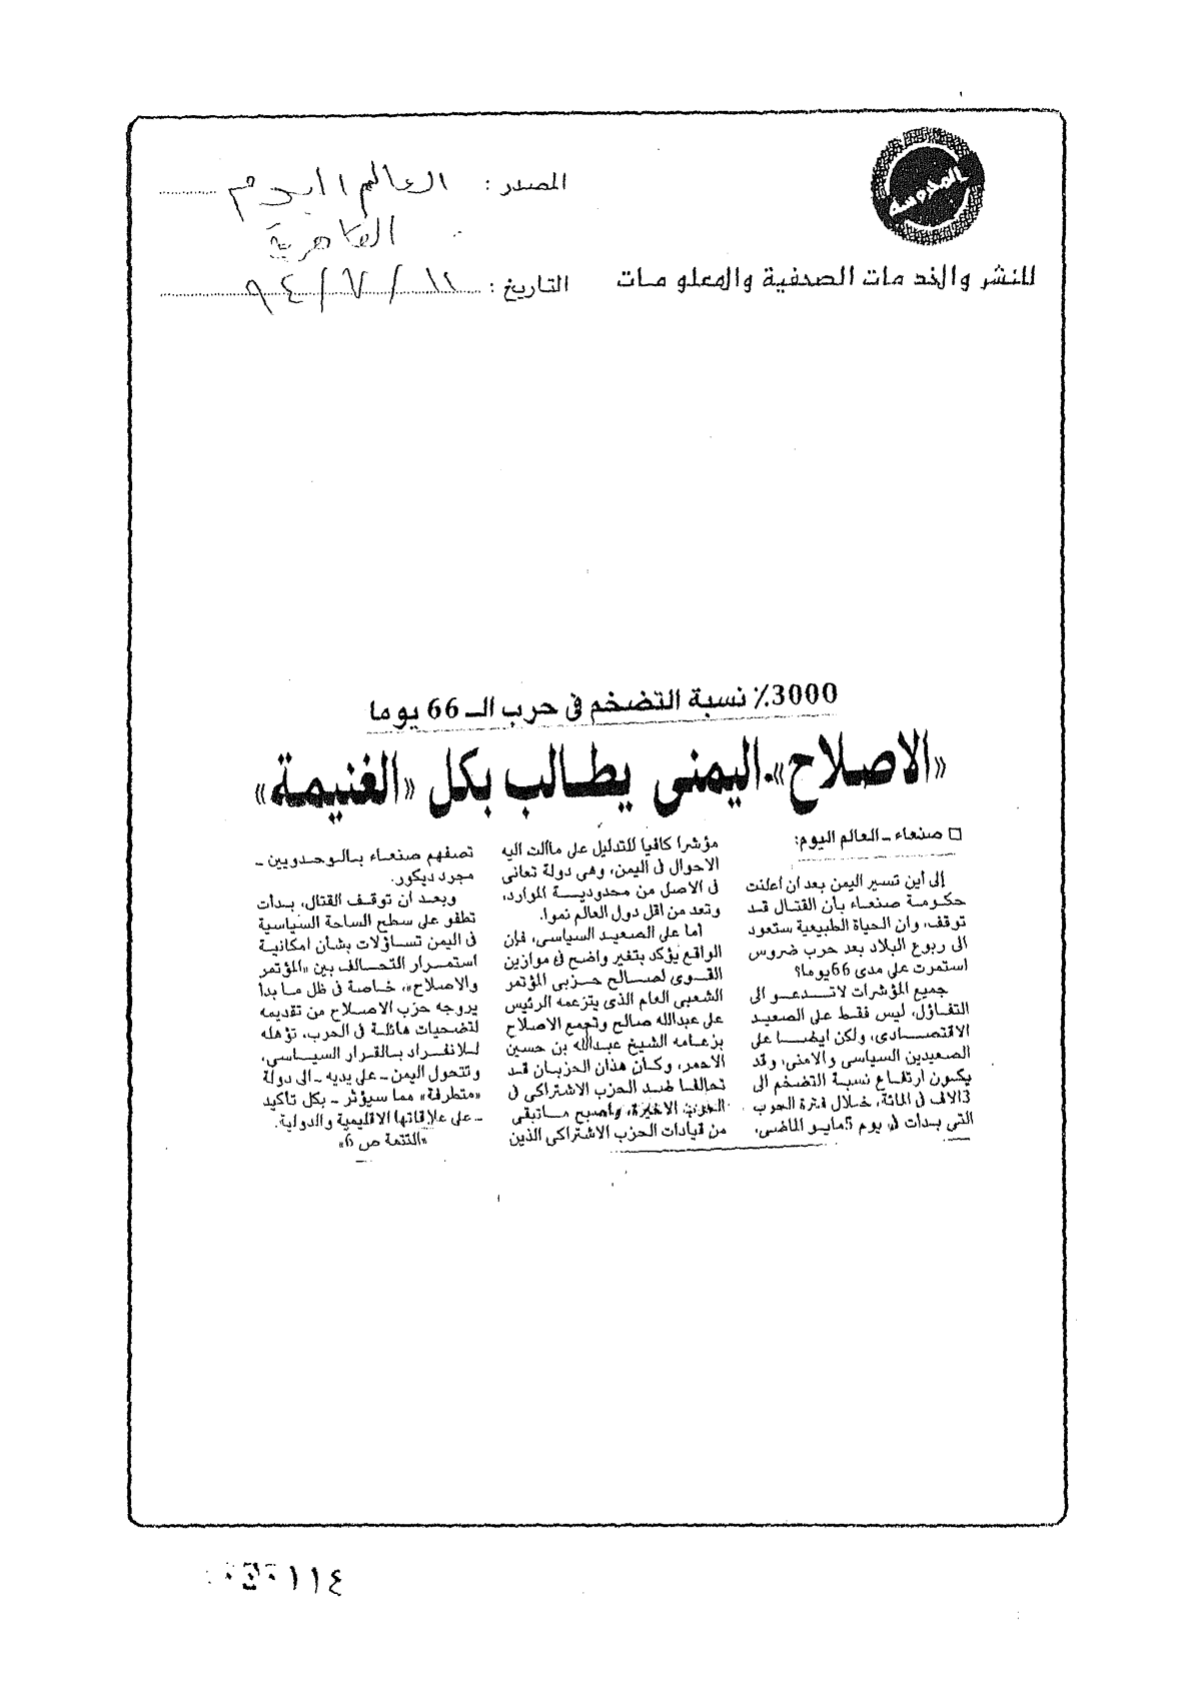 المحروسة
للنشر والخدمات الصحفية والمعلومات
المصدر : العالم اليوم
القاهرية
التاريخ : ١١ / ٧ / ٩٤
3000٪ نسبة التضخم فى حرب الـ 66 يوما
«الاصلاح» اليمنى يطالب بكل «الغنيمة»
□ صنعاء ـ العالم اليوم:
إلى أين تسير اليمن بعد ان اعلنت
حكومة صنعاء بأن القتال قد
توقف، وان الحياة الطبيعية ستعود
الى ربوع البلاد بعد حرب ضروس
استمرت على مدى 66 يوما؟
جميع المؤشرات لاتدعو الى
التفاؤل، ليس فقط على الصعيد
الاقتصادى، ولكن ايضا على
الصعيدين السياسى والامنى، وقد
يكون ارتفاع نسبة التضخم الى
3الاف فى المائة، خلال فترة الحرب
التى بدات فى يوم 5مايو الماضى،
مؤشرا كافيا للتدليل على ماآلت اليه
الاحوال فى اليمن، وهى دولة تعانى
فى الاصل من محدودية الموارد،
وتعد من اقل دول العالم نموا.
أما على الصعيد السياسى، فإن
الواقع يؤكد بتغير واضح فى موازين
القوى لصالح حزبى المؤتمر
الشعبى العام الذى يتزعمه الرئيس
على عبدالله صالح وتجمع الاصلاح
بزعامه الشيخ عبدالله بن حسين
الاحمر، وكان هذان الحزبان قد
تحالفا ضد الحزب الاشتراكى فى
الحرب الاخيرة، واصبح ماتبقى
من قيادات الحزب الاشتراكى الذين
تصفهم صنعاء بالوحدويين ـ
مجرد ديكور.
وبعد ان توقف القتال، بدأت
تطفو على سطح الساحة السياسية
فى اليمن تساؤلات بشأن امكانية
استمرار التحالف بين «المؤتمر
والاصلاح»، خاصة فى ظل مابدا
يروجه حزب الاصلاح من تقديمه
لتضحيات هائلة فى الحرب، تؤهله
للانفراد بالقرار السياسى،
وتتحول اليمن ـ على يديه ـ الى دولة
«متطرفة» مما سيؤثر ـ بكل تأكيد
ـ على علاقاتها الاقليمية والدولية.
«التتمة ص 6»
١١٤